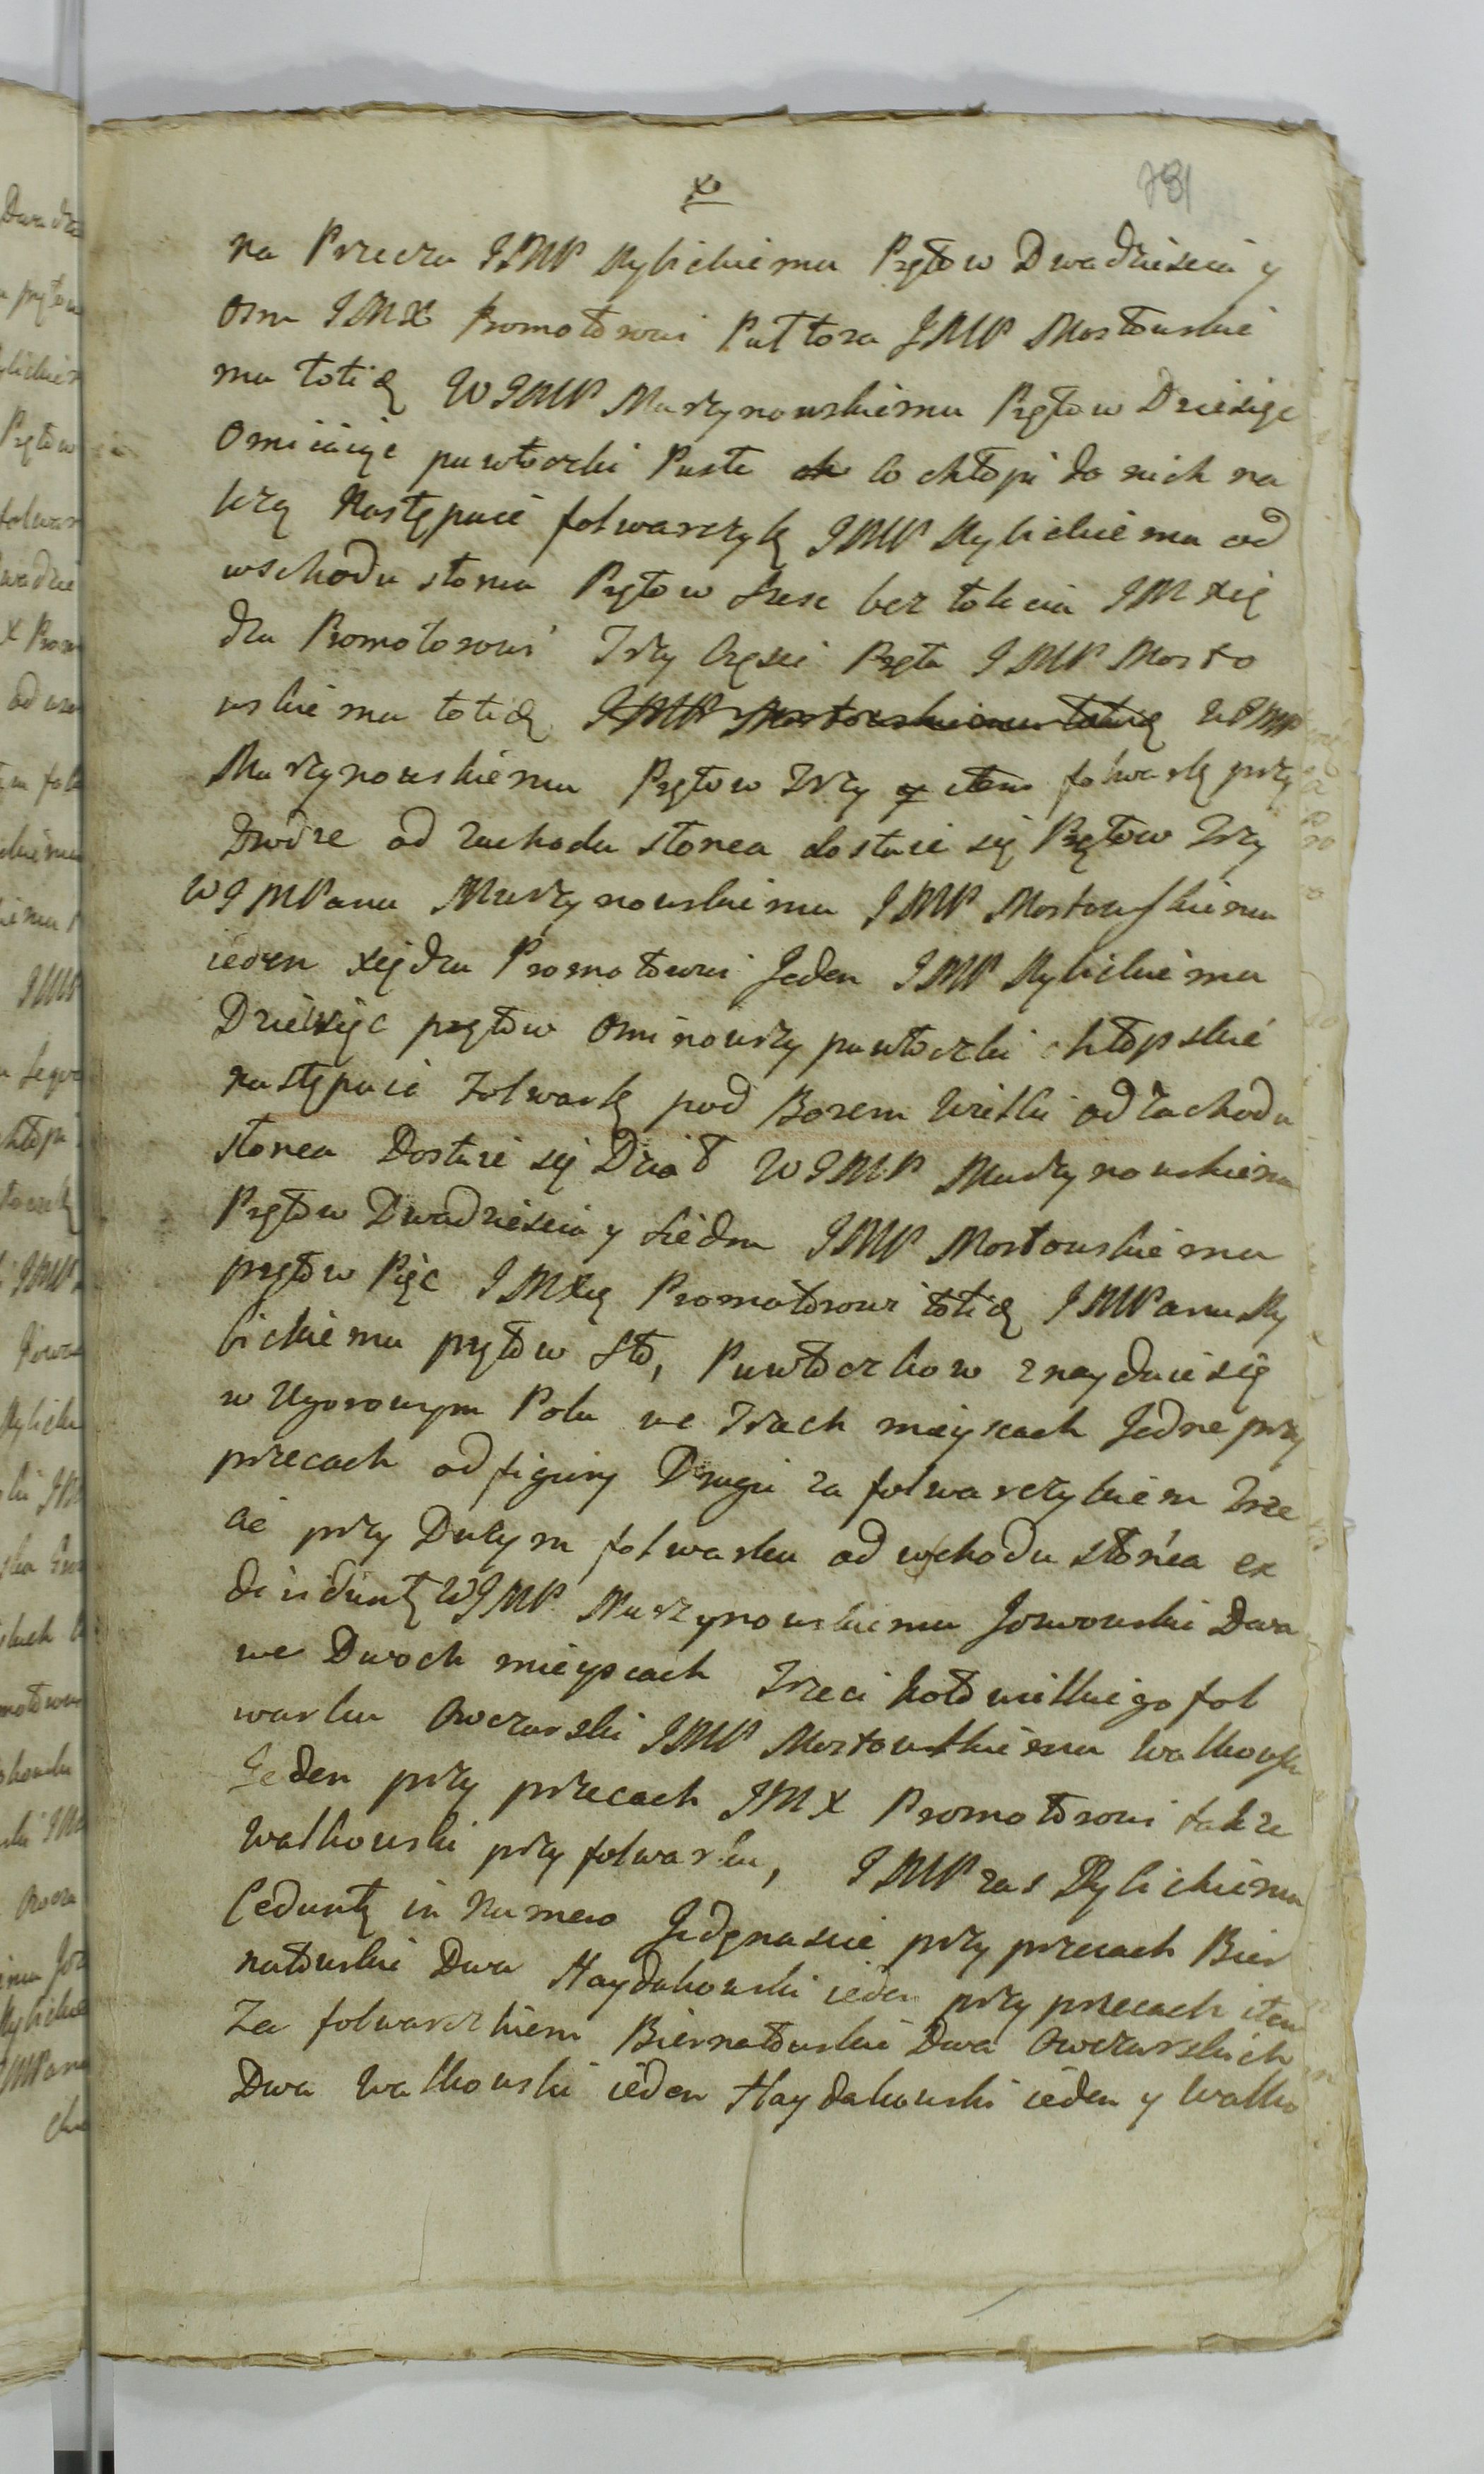 x
781
na Przecza IMP Rybickiemu Prętow Dwadziescia y
osm IMX Promotorowi Pułtora JMP Mostowskie
mu totidę WIMP Murzynowskiemu Prętow Dziesięc
Omiiaiąc pawłoczki Puste co chłopi do nich na
lezą Następuie folwarczyk IMP Rybickiemu od
wschodu słonca Prętow szesc bez łokcia IM xię
dzu Promotorowi Trzy Częsci Pręta IMP Mosto
wskiemu totidę IMP Mostowskiemu totidę WIMP
Murzynowskiemu Prętow Trzy y item folwark przy
Dworze od zachodu słonca dostaie się Prętow Trzy
WIMPanu Murzynowskiemu IMP Mostowskiemu
ieden xiędzu Promotorowi Jeden IMP Rybickiemu
Dziesięc prętow Ominowszy pawłoczki chłopskie
następuie Folwark pod Borem Wielki od Zachodu
słonca Dostaie się Dział WIMP Murzynowskiemu
Prętow Dwadziescia y siedm IMP Mostowskiemu
prętow Pięc IMXię Promotorowi totidę IMPanu Ry
bickiemu prętow sto, Puwłoczkow znayduie się
w Ugorowym Polu we Trzech mieyscach Jedne przy
przecach od figury Drugie za folwarczykiem Trze
cie przy Duzym folwarku od wschodu słońca ex
dividunt WIMP Murzynowskiemu Jozwowski Dwa
we Dwoch mieyscach Trzeci koło wielkiego fol
warku Owczarski IMP Mostowskiemu Walkowski
Jeden przy przecach IMX Promotorowi także
Walkowski przy folwarku, IMP zas Rybickiemu
Cedunt in Numero Jedynascie przy przecach Bier
natowskie Dwa Haydukowski ieden przy przecach item
Za folwarczkiem Biernatowskie Dwa Owczarskich
Dwa Walkowski ieden Haydukowski ieden y Walko